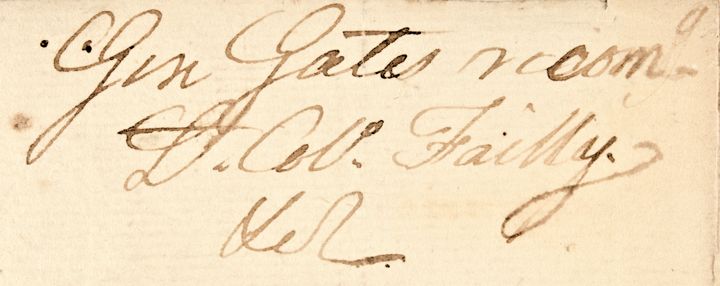 Gen Gates recom.g
Lt. Col.o Failly.
&c